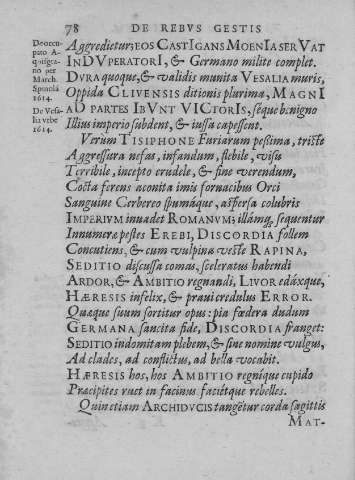 78 DE REBVS GESTIS
De occu-
pato A-
quisgra-
no per
March.
Spinolā
1614.
De Vesa-
lia vrbe
1614.
Aggredietur: EOS CASTIGANS MOENIA SERVAT
INDVPERATORI, & Germano milite complet.
DVRA quoque, & validis munita VESALIA muris,
Oppida CLIVENSIS ditionis plurima, MAGNI
AD PARTES IBVNT VICTORIS, seque benigno
Illius imperio subdent, & iussa capessent.
Verum TISIPHONE Furiarum pessima, triste
Aggressura nefas, infandum, flebile, visu
Terribile, incepto crudele, & sine verendum,
Cocta ferens aconita imis fornacibus Orci
Sanguine Cerbereo spumáque, aspersa colubris
IMPERIVM inuadet ROMANVM; illámq; sequentur
Innumeræ pestes EREBI, DISCORDIA follem
Concutiens, & cum vulpina veste RAPINA,
SEDITIO discussa comas, sceleratus habendi
ARDOR, & AMBITIO regnandi, LIVOR edáxque,
HÆRESIS infelix, & praui credulus ERROR.
Quæque suum sortitur opus: pia fœdera dudum
GERMANA sancita fide, DISCORDIA franget:
SEDITIO indomitam plebem, & sine nomine vulgus,
Ad clades, ad conflictus, ad bella vocabit.
HÆRESIS hos, hos AMBITIO regnique cupido
Præcipites ruet in facinus faciétque rebelles.
Quin etiam ARCHIDVCIS tangetur corda sagittis
MAT-